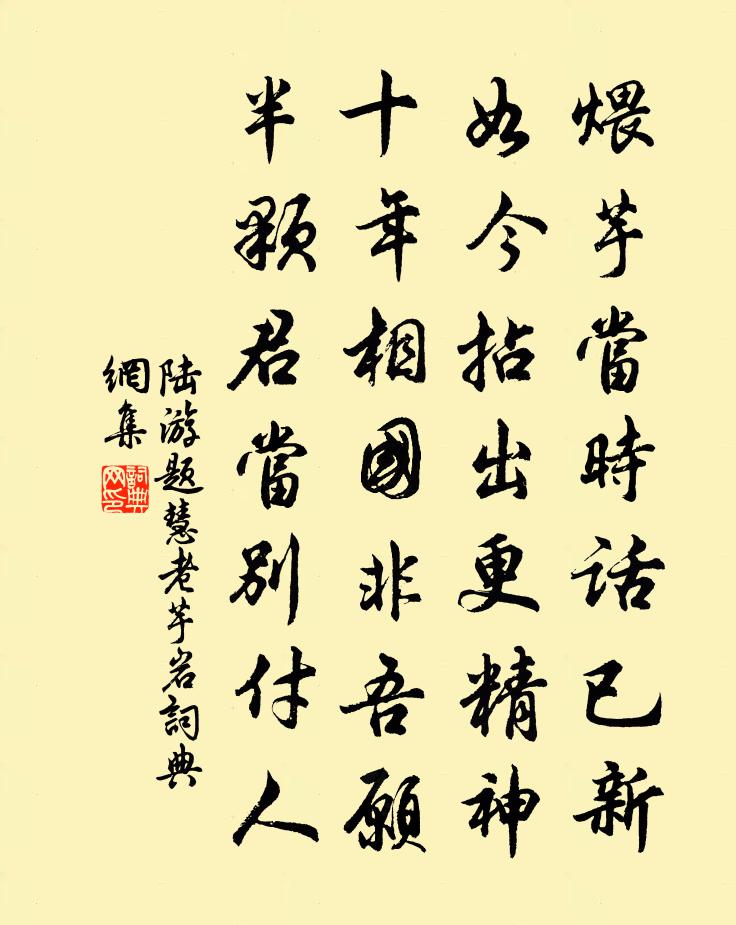 煨芋當時話已新
如今拈出更精神
十年相國非吾願
半顆君當別付人
陆游题慧老芋岩詞典
網集
詞典
网印